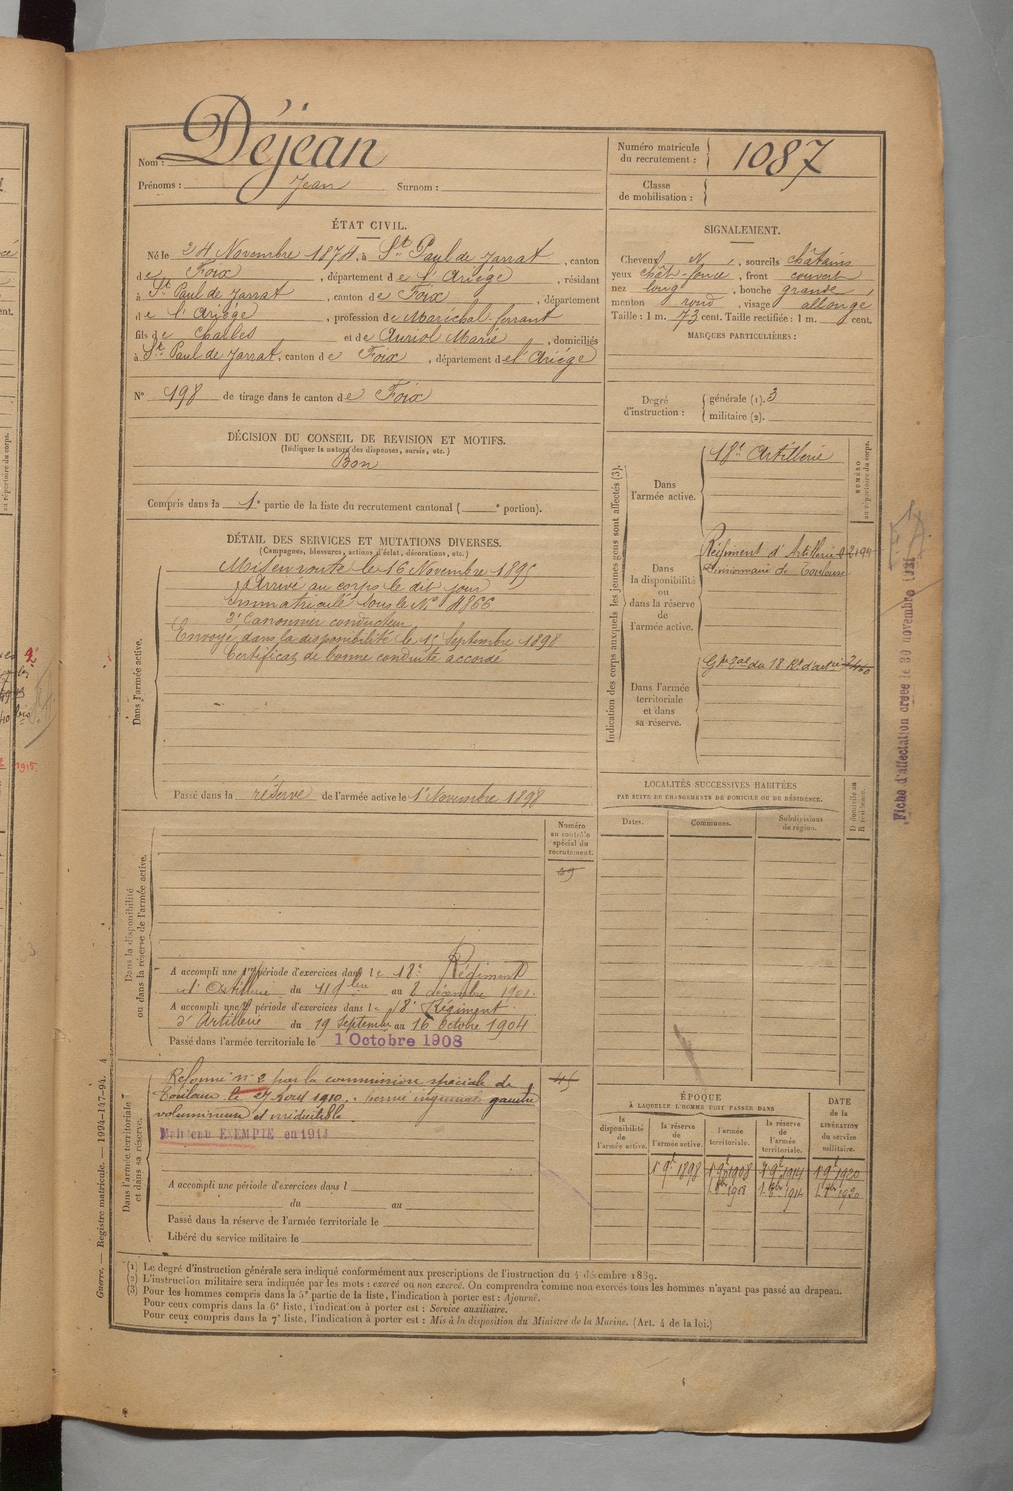 Nom : Déjean
Prénoms : Jean Surnom :
Numéro matricule du recrutement : 1087
Classe de mobilisation :
ÉTAT CIVIL.
Né le 24 Novembre 1874, à St Paul de Jarrat, canton
de Foix, département de l'Ariège, résidant
à St Paul de Jarrat, canton de Foix, département
de l'Ariège, profession de Maréchal-ferrant
fils de Charles et de Auriol Marie, domiciliés
à St Paul de Jarrat, canton de Foix, département de l'Ariège
N° 198 de tirage dans le canton de Foix
SIGNALEMENT.
Cheveux N, sourcils châtains
yeux chât-foncé, front couvert
nez long, bouche grande,
menton rond, visage allongé
Taille : 1 m. 73 cent. Taille rectifiée : 1 m. cent.
MARQUES PARTICULIÈRES :
Degré d'instruction : générale (1). 3
militaire (2).
DÉCISION DU CONSEIL DE REVISION ET MOTIFS.
(Indiquer la nature des dispenses, sursis, etc.)
Bon
Compris dans la 1e partie de la liste du recrutement cantonal ( e portion).
DÉTAIL DES SERVICES ET MUTATIONS DIVERSES.
(Campagnes, blessures, actions d'éclat, décorations, etc.)
Dans l'armée active.
Mis en route le 16 Novembre 1895
Arrivé au corps le dit jour
Immatriculé sous le N° 4866
2e Canonnier conducteur
Envoyé dans la disponibilité le 15 Septembre 1898
Certificat de bonne conduite accordé
Passé dans la réserve de l'armée active le 1er Novembre 1898
Indication des corps auxquels les jeunes gens sont affectés (3).
NUMÉRO au répertoire du corps.
Dans l'armée active.
18e Artillerie
Dans la disponibilité ou dans la réserve de l'armée active.
Régiment d'Artillerie 2194
Divisionnaire de Toulouse
Dans l'armée territoriale et dans sa réserve.
LOCALITÉS SUCCESSIVES HABITÉES
PAR SUITE DE CHANGEMENTS DE DOMICILE OU DE RÉSIDENCE.
Dates. Communes. Subdivisions de région. D domicile ou R résidence.
Dans la disponibilité ou dans la réserve de l'armée active.
Numéro au contrôle spécial du recrutement.
A accompli une 1re période d'exercices dans le 18e Régiment
d'Artillerie du 11 9bre au 8 décembre 1901.
A accompli une 2e période d'exercices dans le 18e Régiment
d'Artillerie du 19 Septembre au 16 Octobre 1904
Passé dans l'armée territoriale le 1 Octobre 1908
Dans l'armée territoriale et dans sa réserve.
Réformé n° 2 par la commission spéciale de
Toulouse le 27 Avril 1910. hernie inguinale gauche
volumineuse et irréductible
Maintenu EXEMPTÉ en 1914
45
A accompli une période d'exercices dans l
du au
Passé dans la réserve de l'armée territoriale le
Libéré du service militaire le
ÉPOQUE
À LAQUELLE L'HOMME DOIT PASSER DANS
DATE de la LIBÉRATION du service militaire.
la disponibilité de l'armée active. la réserve de l'armée active. l'armée territoriale. la réserve de l'armée territoriale.
1 9e 1898 1 9e 1908 1 9e 1914 1 9e 1920
(1) Le degré d'instruction générale sera indiqué conformément aux prescriptions de l'instruction du 4 décembre 1889.
(2) L'instruction militaire sera indiquée par les mots : exercé ou non exercé. On comprendra comme non exercés tous les hommes n'ayant pas passé au drapeau.
(3) Pour les hommes compris dans la 5e partie de la liste, l'indication à porter est : Ajourné.
Pour ceux compris dans la 6e liste, l'indication à porter est : Service auxiliaire.
Pour ceux compris dans la 7e liste, l'indication à porter est : Mis à la disposition du Ministre de la Marine. (Art. 4 de la loi.)
Guerre. — Registre matricule. — 1994-147-94. 4
Fiche d'affectation créée le 30 novembre